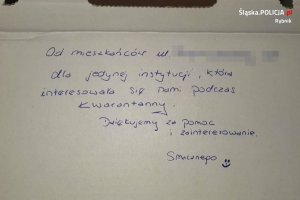 Śląska.POLICJA.pl
Rybnik
Od mieszkańców ul.
dla jedynej instytucji, która
interesowała się nami podczas
kwarantanny.
Dziękujemy za pomoc
i zainteresowanie.
Smacznego